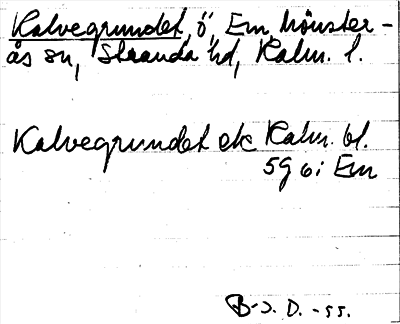 Kalvegrundet, ö, Em, Mönster-
ås sn, Stranda hd, Kalm. l.
Kalvegrundet ek Kalm. bl.
5g 6i Em
B-J. D. -55.